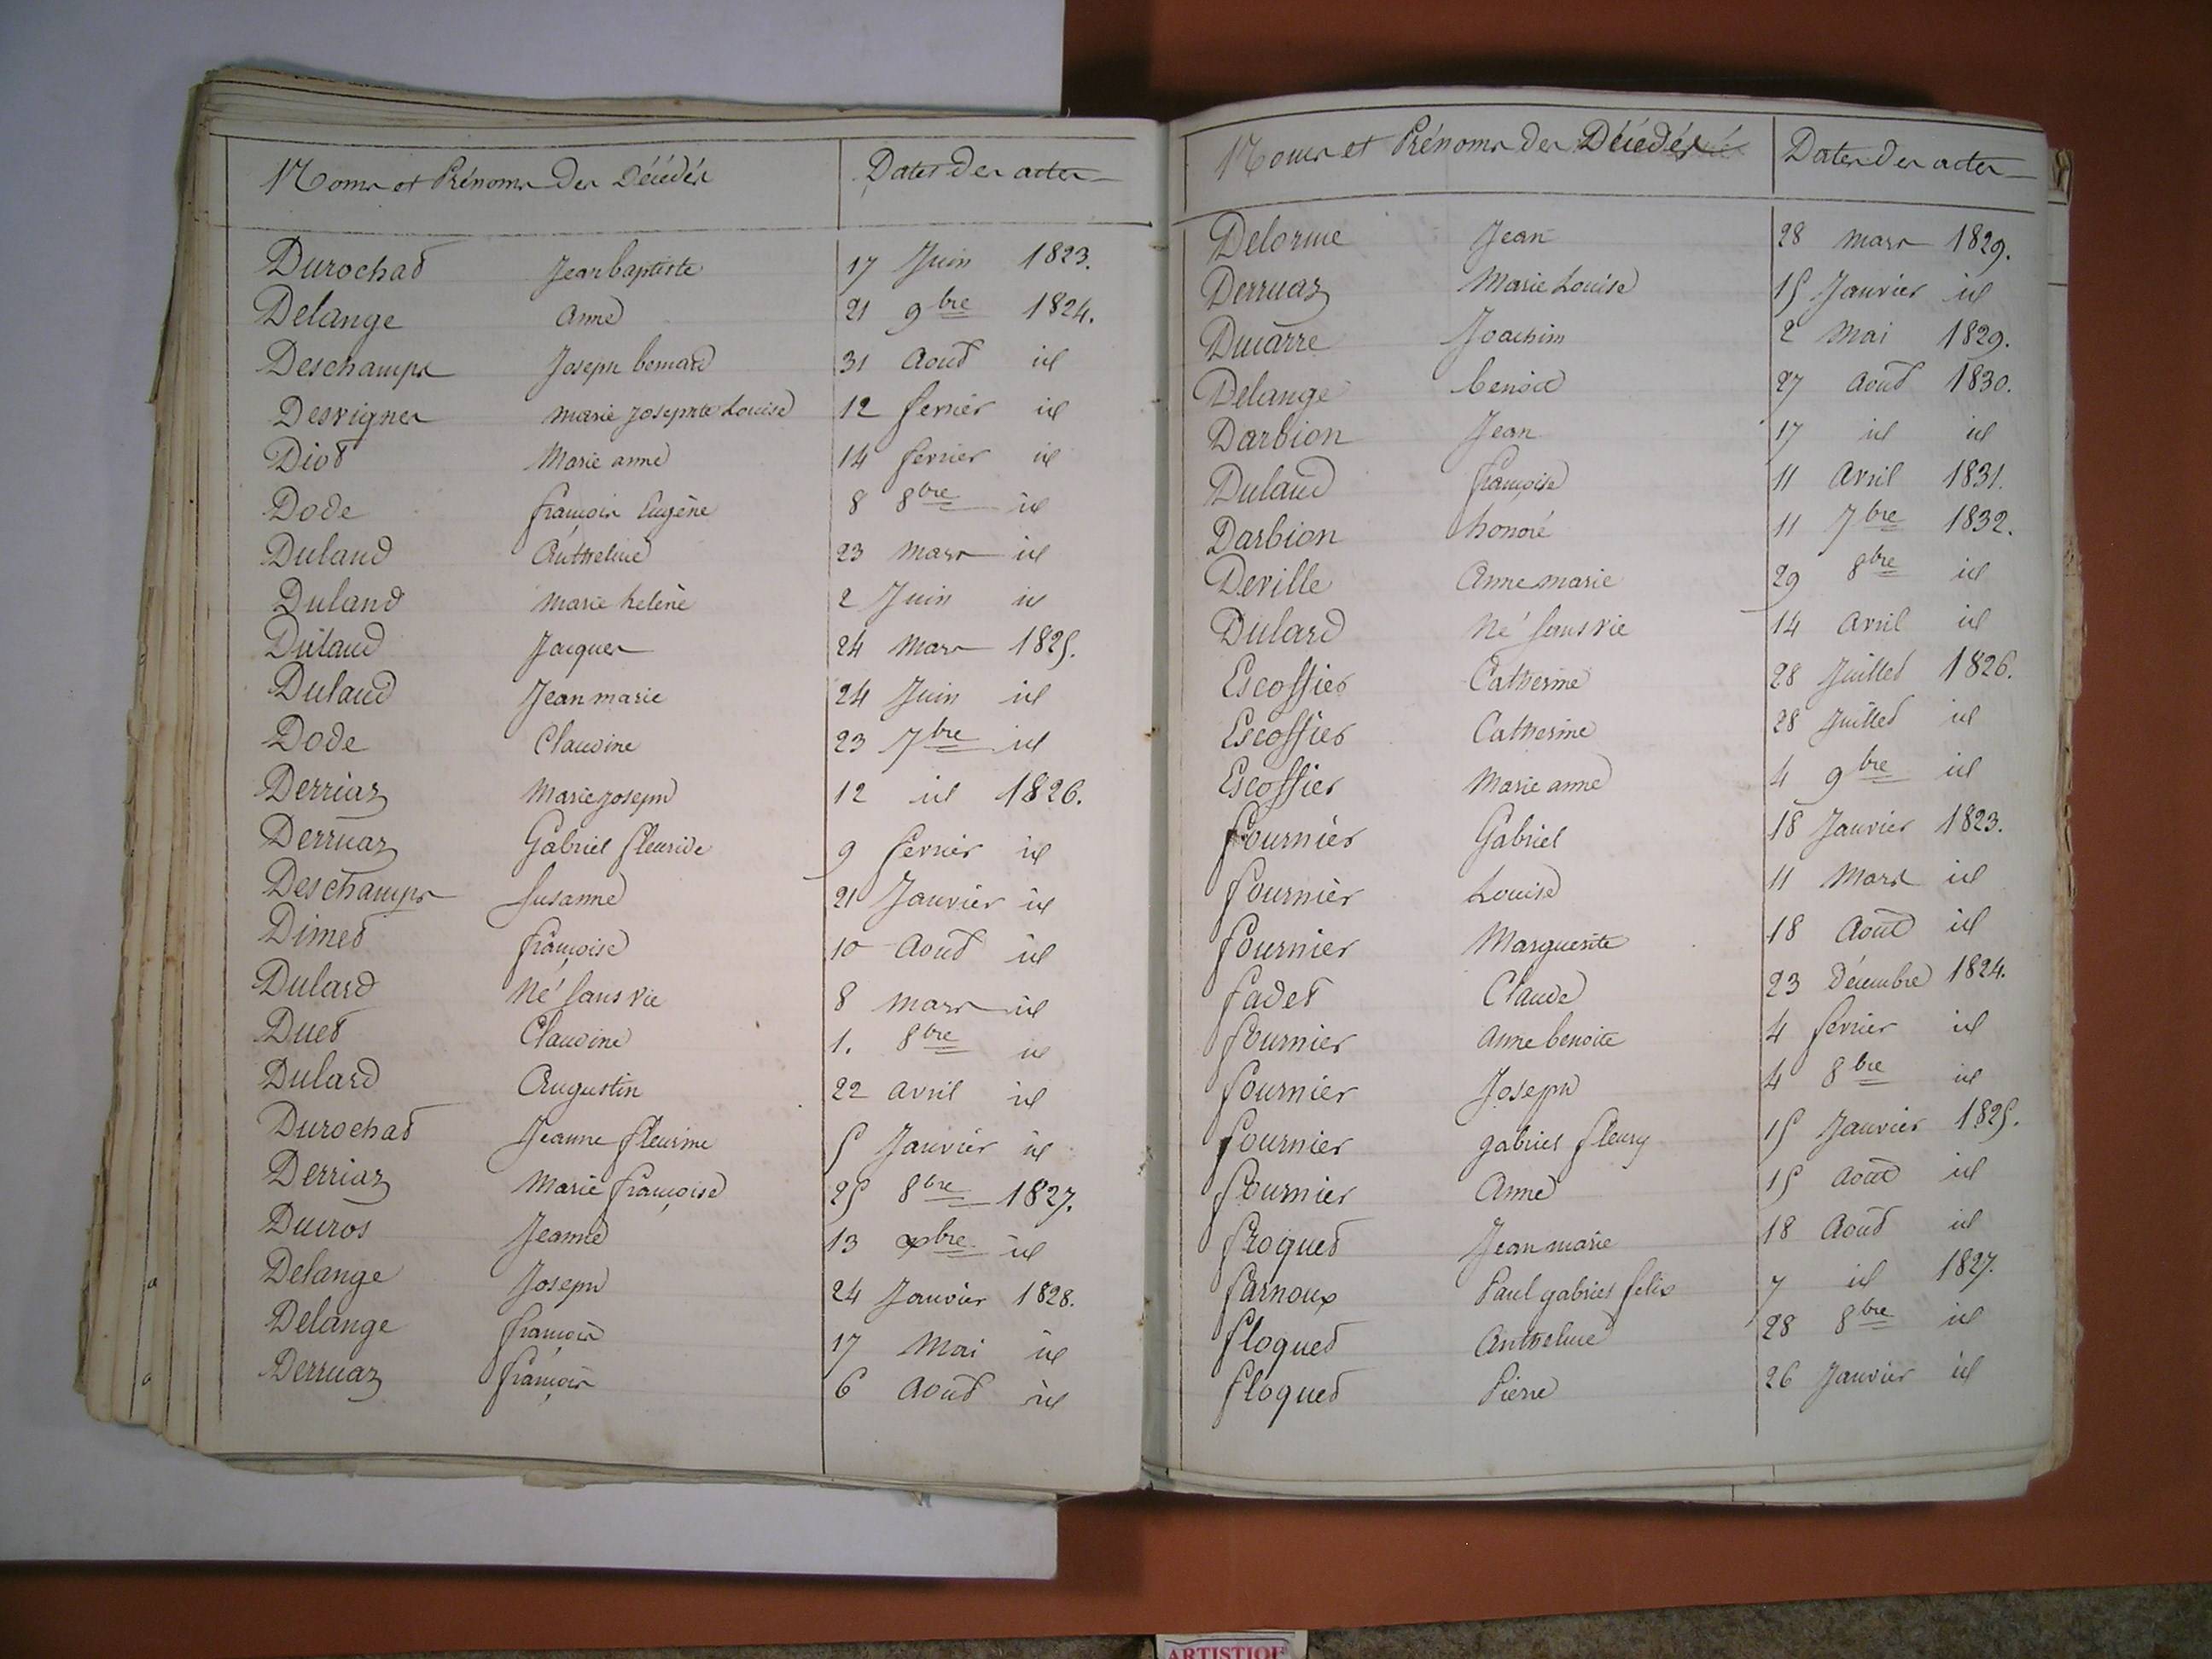 Noms et Prénoms des Décédés Dates des actes
Durochat Jean baptiste 17 Juin 1823.
Delange anne 21 9bre 1824.
Deschamps Joseph bernard 31 Aout id
Desvignes marie josephte Louise 12 fevrier id
Diot Marie anne 14 fevrier id
Dode françois Eugène 8 8bre id
Duland Anthelme 23 mars id
Duland marie helène 2 Juin id
Duland Jacques 24 Mars 1825.
Duland Jean marie 24 Juin id
Dode Claudine 23 7bre id
Derriaz Marie joseph 12 id 1826.
Derruaz Gabriel fleuride 9 fevrier id
Deschamps Susanne 21 Janvier id
Dimet françoise 10 Aout id
Dulard Né sans vie 8 mars id
Duet Claudine 1. 8bre id
Dulard Augustin 22 avril id
Durochat Jeanne fleurine 5 Janvier id
Derriaz Marie françoise 25 8bre 1827.
Ducros Jeanne 13 xbre id
Delange Joseph 24 Janvier 1828.
Delange françois 17 Mai id
Derruaz françois 6 Aout id
Noms et Prénoms des Décédés Dates des actes
Delorme Jean 28 mars 1829.
Derruaz Marie Louise 15 Janvier id
Ducarre Joachim 2 Mai 1829.
Delange benoit 27 Aout 1830.
Darbion Jean 17 id id
Duland françoise 11 Avril 1831.
Darbion honoré 11 7bre 1832.
Deville Anne marie 29 8bre id
Dulard Né sans vie 14 avril id
Escoffier Catherine 28 Juillet 1826.
Escoffier Catherine 28 Juillet id
Escoffier Marie anne 4 9bre id
fournier Gabriel 18 Janvier 1823.
fournier Louise 11 Mars id
fournier Marguerite 18 Aout id
fadet Claude 23 Décembre 1824.
fournier anne benoite 4 fevrier id
fournier Joseph 4 8bre id
fournier gabriel fleury 15 Janvier 1825.
fournier Anne 15 Aout id
froquet Jean marie 18 Aout id
farnoux Paul gabriel felix 7 id 1827.
floquet Anthelme 28 8bre id
floquet Pierre 26 Janvier id
ARTISTIQUE